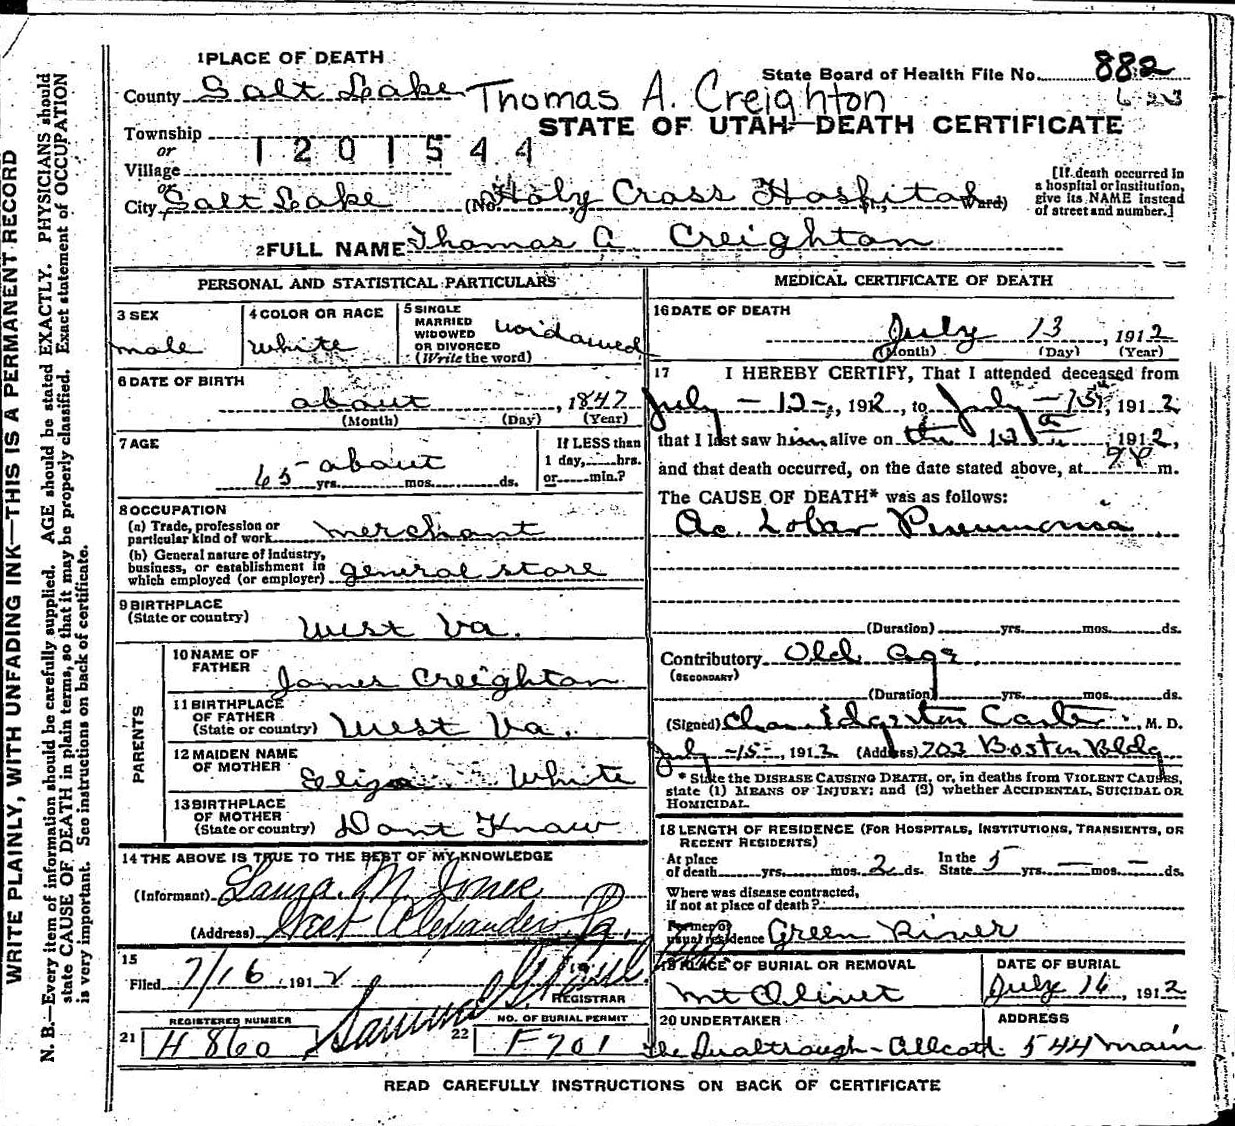 1 PLACE OF DEATH
State Board of Health File No. 882
County Salt Lake Thomas A. Creighton
STATE OF UTAH—DEATH CERTIFICATE
Township
or
1201544
Village
or
City Salt Lake (No. Holy Cross Hospital Ward)
[If death occurred in
a hospital or institution,
give its NAME instead
of street and number.]
2 FULL NAME Thomas A. Creighton
PERSONAL AND STATISTICAL PARTICULARS
3 SEX
male
4 COLOR OR RACE
White
5 SINGLE
MARRIED
WIDOWED
OR DIVORCED
(Write the word)
widowed
6 DATE OF BIRTH
about, 1847
(Month) (Day) (Year)
7 AGE
about
65 yrs. mos. ds.
If LESS than
1 day, hrs.
or min.?
8 OCCUPATION
(a) Trade, profession or
particular kind of work merchant
(b) General nature of industry,
business, or establishment in
which employed (or employer) general store
9 BIRTHPLACE
(State or country)
West Va.
PARENTS
10 NAME OF
FATHER
James Creighton
11 BIRTHPLACE
OF FATHER
(State or country) West Va.
12 MAIDEN NAME
OF MOTHER
Eliza White
13 BIRTHPLACE
OF MOTHER
(State or country) Dont Know
14 THE ABOVE IS TRUE TO THE BEST OF MY KNOWLEDGE
(Informant) Laura M. Jones
(Address) West Alexander Pa.
15
Filed 7/16, 1912
REGISTRAR
REGISTERED NUMBER
21 H 860
NO. OF BURIAL PERMIT
22 F 701
MEDICAL CERTIFICATE OF DEATH
16 DATE OF DEATH
July 13, 1912
(Month) (Day) (Year)
17 I HEREBY CERTIFY, That I attended deceased from
July - 12 -, 1912, to July - 13, 1912
that I last saw him alive on the 13, 1912,
and that death occurred, on the date stated above, at 9 P m.
The CAUSE OF DEATH* was as follows:
Ac. Lobar Pneumonia
(Duration) yrs. mos. ds.
Contributory Old age
(SECONDARY)
(Duration) yrs. mos. ds.
(Signed) Chas. Edgerton Carter, M. D.
July -15-, 1912 (Address) 702 Boston Bldg
* State the DISEASE CAUSING DEATH, or, in deaths from VIOLENT CAUSES,
state (1) MEANS OF INJURY; and (2) whether ACCIDENTAL, SUICIDAL OR
HOMICIDAL.
18 LENGTH OF RESIDENCE (FOR HOSPITALS, INSTITUTIONS, TRANSIENTS, OR
RECENT RESIDENTS)
At place
of death yrs. mos. 2 ds.
In the
State 5 yrs. — mos. — ds.
Where was disease contracted,
if not at place of death?
Former or
usual residence Green River
19 PLACE OF BURIAL OR REMOVAL
Mt Olivet
DATE OF BURIAL
July 16, 1912
20 UNDERTAKER
ADDRESS
544 Main
READ CAREFULLY INSTRUCTIONS ON BACK OF CERTIFICATE
WRITE PLAINLY, WITH UNFADING INK—THIS IS A PERMANENT RECORD
N. B.—Every item of information should be carefully supplied. AGE should be stated EXACTLY. PHYSICIANS should
state CAUSE OF DEATH in plain terms, so that it may be properly classified. Exact statement of OCCUPATION
is very important. See instructions on back of certificate.